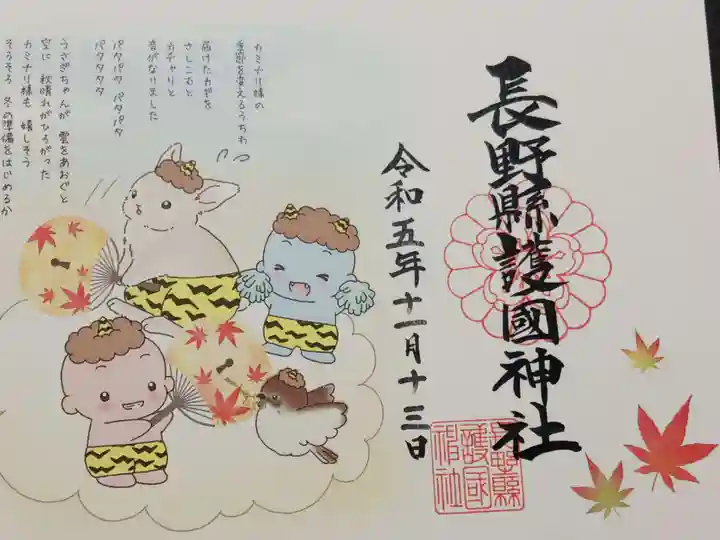 長野縣護國神社
令和五年十一月十三日
長野縣
護國
神社
カミナリ様の
季節を変えるうちわ
届けたカギを
さしこむと
カチャリと
音がなりました
パタパタ パタパタ
パタタタタ
うさぎちゃんが 雲をあおぐと
空に 秋晴れがひろがった
カミナリ様も 嬉しそう
そろそろ 冬の準備をはじめるか